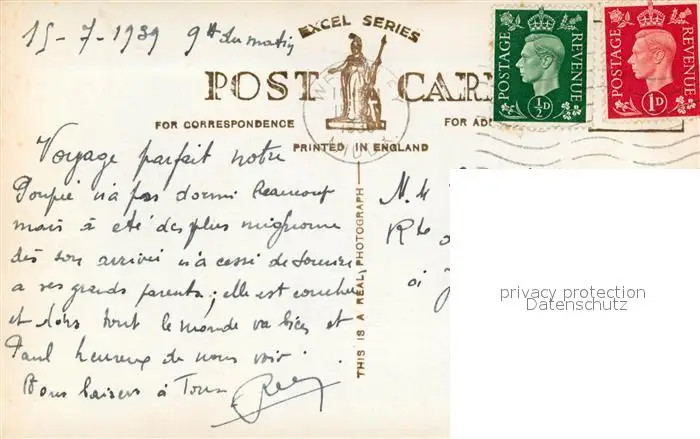 15-7-1939 9H du matin
EXCEL SERIES
POST CARD
FOR CORRESPONDENCE
FOR AD
PRINTED IN ENGLAND
POSTAGE REVENUE
½D
POSTAGE REVENUE
1D
Voyage parfait notre
Poupée n'a pas dormi beaucoup
mais à été des plus mignonne
dès son arrivée n'a cessé de sourire
a ses grands parents; elle est couchée
et dors tout le monde va bien et
Paul heureux de nous voir.
Bons baisers à Tous
THIS IS A REAL PHOTOGRAPH
privacy protection
Datenschutz